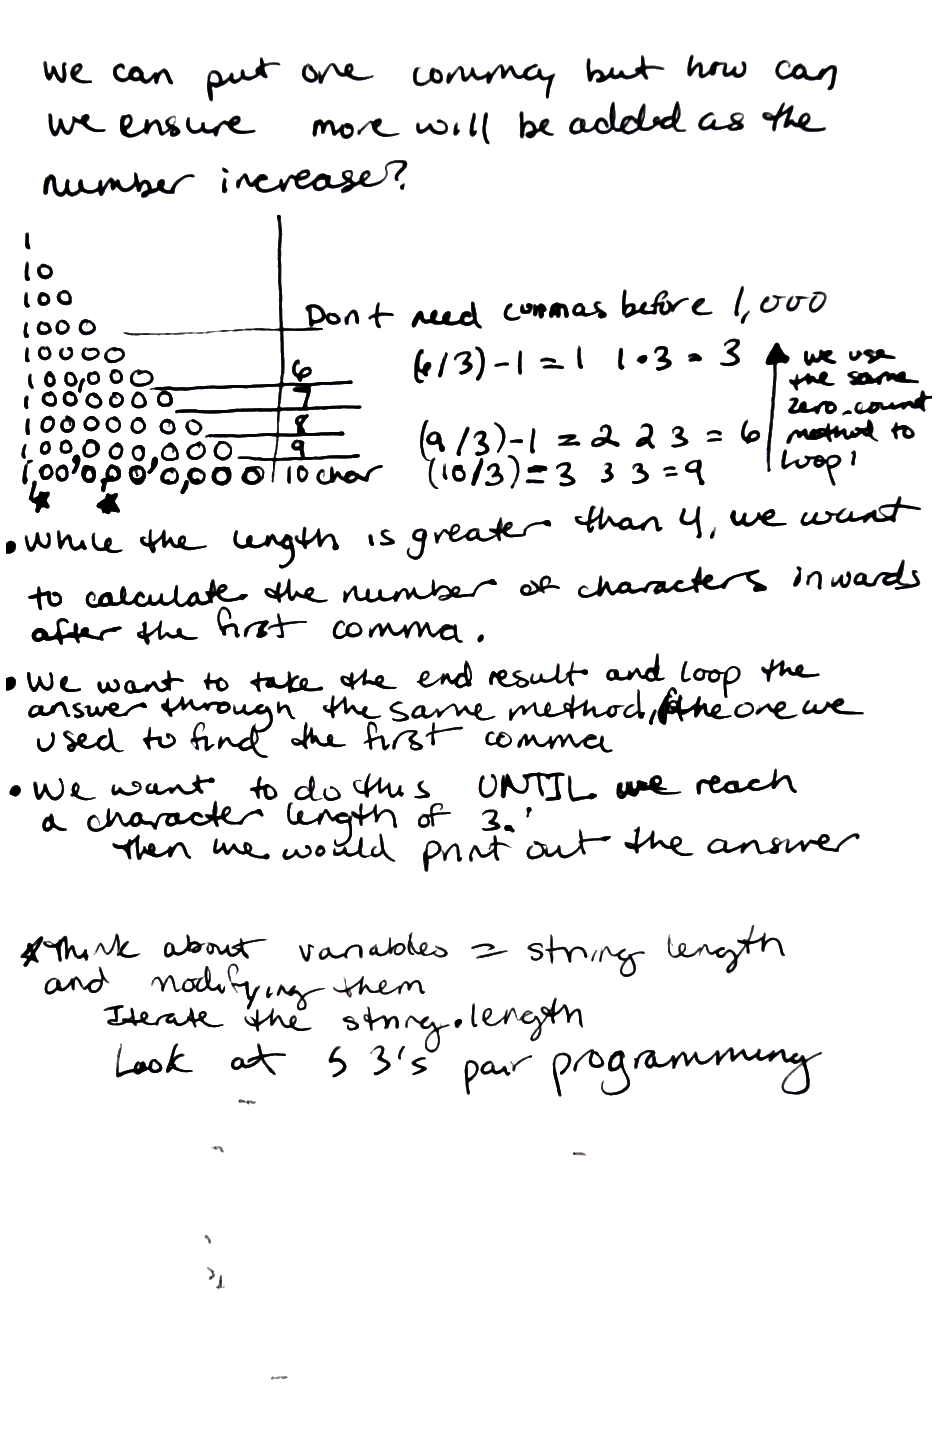 we can put one comma, but how can
we ensure more will be added as the
number increase?
1
10
100
1000
Don't need commas before 1,000
10000
100,000 6 (6/3)-1 = 1 1·3 = 3
we use
the same
zero-count
method to
loop!
1000000 7
10000000 8
100,000,000 9 (9/3)-1 = 2 2 3 = 6
1,000,000,000 10 char (10/3) = 3 3 3 = 9
• While the length is greater than 4, we want
to calculate the number of characters inwards
after the first comma.
• We want to take the end result and loop the
answer through the same method, the one we
used to find the first comma
• We want to do this UNTIL we reach
a character length of 3.
Then we would print out the answer
*Think about variables = string length
and modifying them
Iterate the string.length
Look at 5 3's pair programming